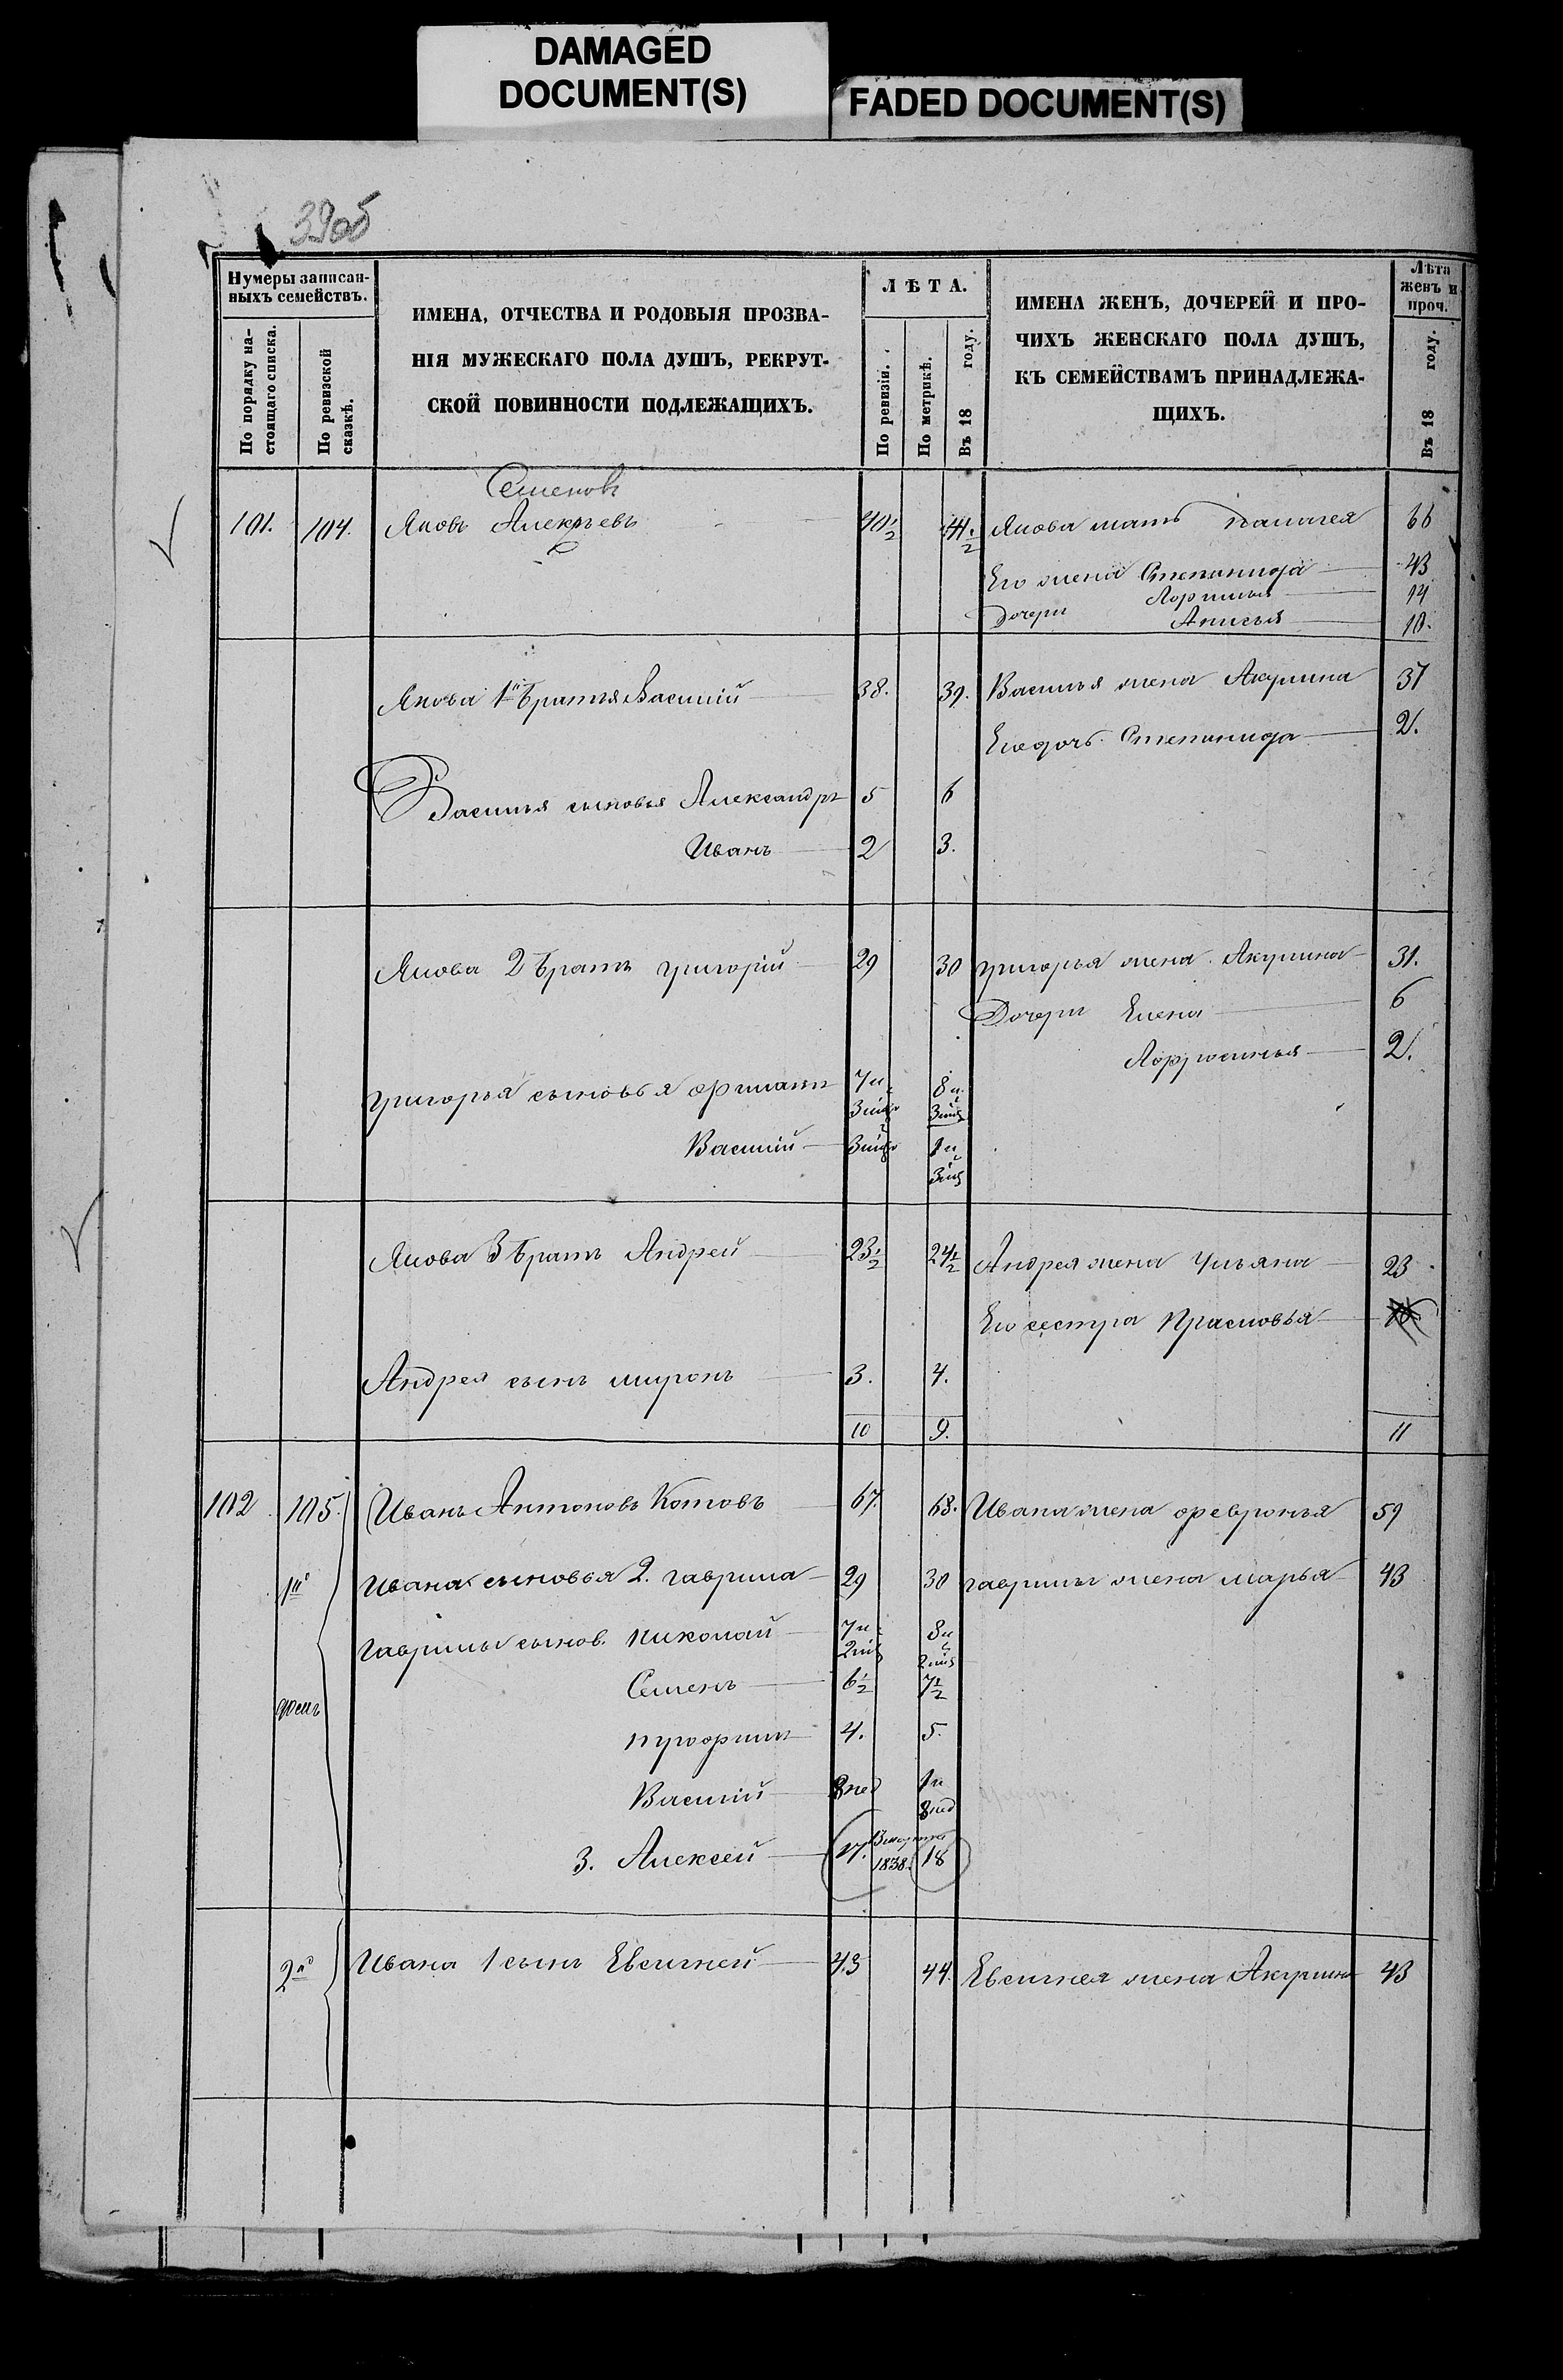 DAMAGED
DOCUMENT(S)
FADED DOCUMENT(S)
39об
Нумеры записан-
ныхъ семействъ.
По порядку на-
стоящаго списка.
По ревизской
сказкѣ.
ИМЕНА, ОТЧЕСТВА И РОДОВЫЯ ПРОЗВА-
НІЯ МУЖЕСКАГО ПОЛА ДУШЪ, РЕКРУТ-
СКОЙ ПОВИННОСТИ ПОДЛЕЖАЩИХЪ.
ЛѢТА.
По ревизіи.
По метрикѣ.
Въ 18 году.
ИМЕНА ЖЕНЪ, ДОЧЕРЕЙ И ПРО-
ЧИХЪ ЖЕНСКАГО ПОЛА ДУШЪ,
КЪ СЕМЕЙСТВАМЪ ПРИНАДЛЕЖА-
ЩИХЪ.
Лѣта
женъ и
проч.
Въ 18 году.
Семеновъ
101. 104. Яковъ 40½ 41.½ Якова мать Палагея 66
Его жена Степанида 43
14
Дочери Анисья 10.
Якова 1й братья Василій 38. 39. Василья жена Акулина 37
Его дочь Степанида 2.
Василья сыновья Александръ 5 6
Иванъ 2 3.
Якова 2 братъ григорій 29 30 григорья жена Акулина 31.
Дочери Елена 6
2.
григорья сыновья филатъ 7 и 3 мѣц 8 и 3 мѣц
Василій 3 мѣц 1 и 3 мѣц
Якова 3 братъ Андрей 23½ 24½ Андрея жена Ульяна 23
Его сестра Прасковья
Андрея сынъ миронъ 3. 4.
10 9. 11
102 105. Иванъ Антоновъ Котовъ 67. 68. Ивана жена февронья 59
1й Ивана сыновья 2. гаврила 29 30 гаврилы жена марья 43
гаврилы сынов. николай 7 и 2 мѣц 8 и 2 мѣц
Семенъ 6½ 7½
4. 5.
Василій 8 нед 1 и 8 нед
3. Алексей 17. 1838. 18
2й Ивана 1 сынъ Евсигней 43 44. Евсигнея жена Акулина 43